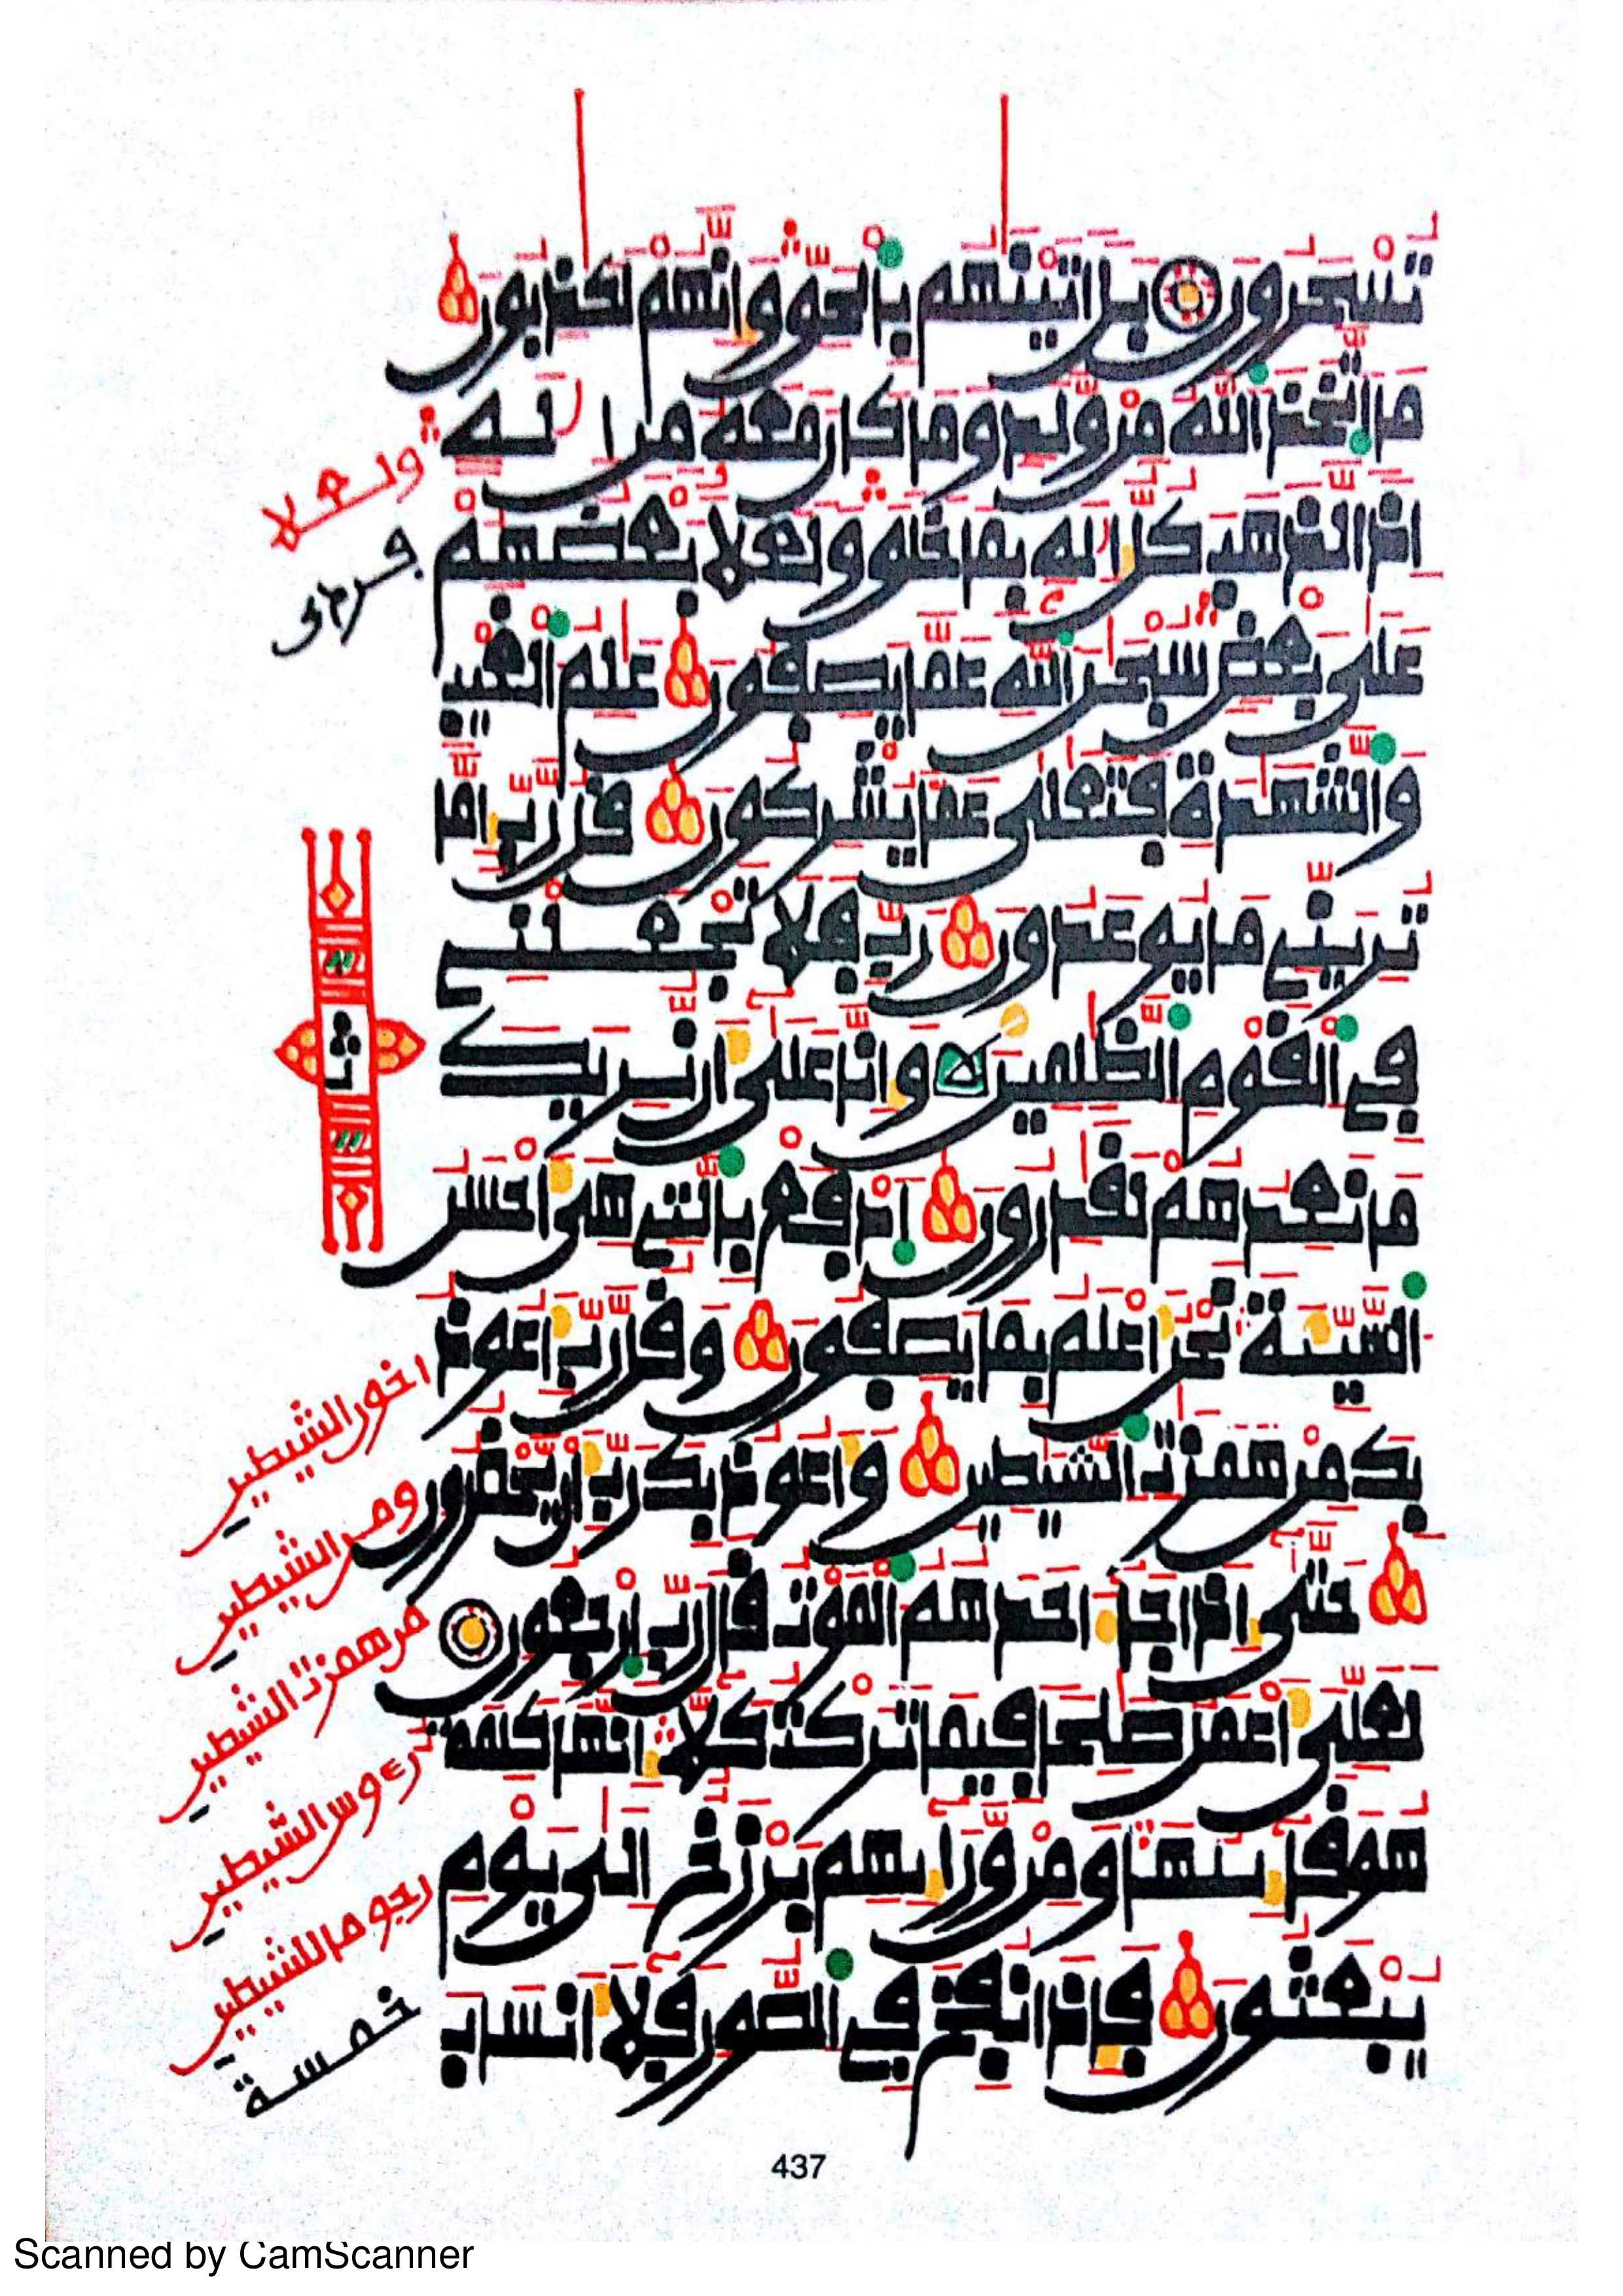 تُسْحَرُونَ بَلَ اتَيْنَٰهُم بِالْحَقِّ وَإِنَّهُمْ لَكَٰذِبُونَ
مَا اَتَّخَذَ اَللَّهُ مِنْ وَّلَدٍ وَمَا كَانَ مَعَهُ مِنِ اِلَٰهٍ
اِذاً لَّذَهَبَ كُلُّ إِلَٰهِ بِمَا خَلَقَ وَلَعَلَا بَعْضُهُمْ
عَلَىٰ بَعْضٍ سُبْحَٰنَ اَللَّهِ عَمَّا يَصِفُونَ عَٰلِمُ اَلْغَيْبِ
وَالشَّهَٰدَةِ فَتَعَٰلَىٰ عَمَّا يُشْرِكُونَ قُل رَّبِّ إِمَّا
تُرِيَنِّے مَا يُوعَدُونَ رَبِّ فَلَا تَجْعَلْنِے
فِے اِلْقَوْمِ اِلظَّٰلِمِينَ وَإِنَّا عَلَىٰ أَن نُّرِيَكَ
مَا نَعِدُهُمْ لَقَٰدِرُونَ اَدْفَعْ بِالتِے هِىَ أَحْسَنُ
اُلسَّيِّئَةَ نَحْنُ أَعْلَمُ بِمَا يَصِفُونَ وَقُل رَّبِّ أَعُوذُ
بِكَ مِنْ هَمَزَٰتِ اِلشَّيَٰطِينِ وَأَعُوذُ بِكَ رَبِّ أَنْ يَّحْضُرُونِ
حَتَّىٰ إِذَا جَآءَ احَدَهُمُ اُلْمَوْتُ قَالَ رَبِّ اِرْجِعُونِ
لَعَلِّىَ أَعْمَلُ صَٰلِحاً فِيمَا تَرَكْتُ كَلَّا إِنَّهَا كَلِمَةٌ
هُوَ قَآئِلُهَا وَمِنْ وَّرَآئِهِم بَرْزَخٌ اِلَىٰ يَوْمِ
يُبْعَثُونَ فَإِذَا نُفِخَ فِے اِلصُّورِ فَلَآ أَنسَابَ
ولعلا
فرءى
ثمن
اخون الشيطين
ومن الشيطين
من همزت الشيطين
رءوس الشيطين
رجوما للشيطين
خمسة
437
Scanned by CamScanner